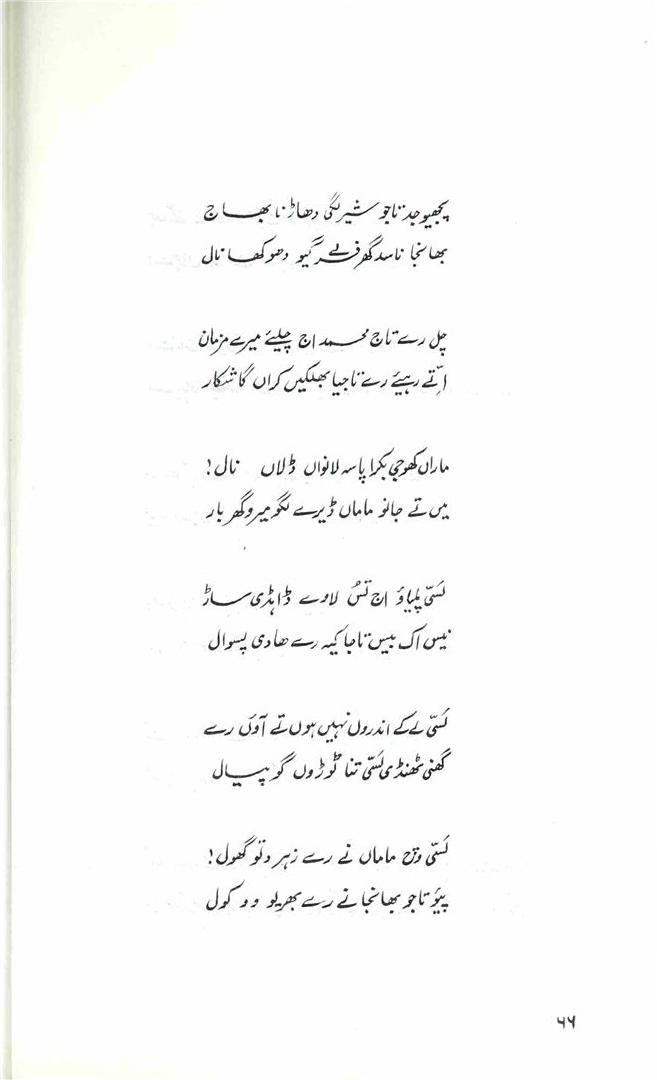 پچھیو جد تاجو شیر نگی دھاڑ نا بھاج
بھانجا نا سد گھر فر گیو دھوکھا نال
چل رے تاج محمد اج چلیئے میرے مزمان
اتّے رہیئے رے تاجیا بھلکیں کراں گا شکار
ماراں کھوجی بکرا پاسہ لانواں ڈلاں نال!
میں تے جانو ماماں ڈیرے لگو میرو گھر بار
لسّی پلیاؤ اج تسُ لاوے ڈاہڈی ساڑ
نیس اک بیس تاجا کیہ رے ھادی پسوال
لسّی لے کے اندروں نہیں ہوں تے آؤں رے
گھنی ٹھنڈی لسّی تنا ٹوڑوں گو پیال
لسّی وچ ماماں نے رے زہر دتو گھول!
پیؤ تاجو بھانجا نے رے بھریو وو کول
۶۶